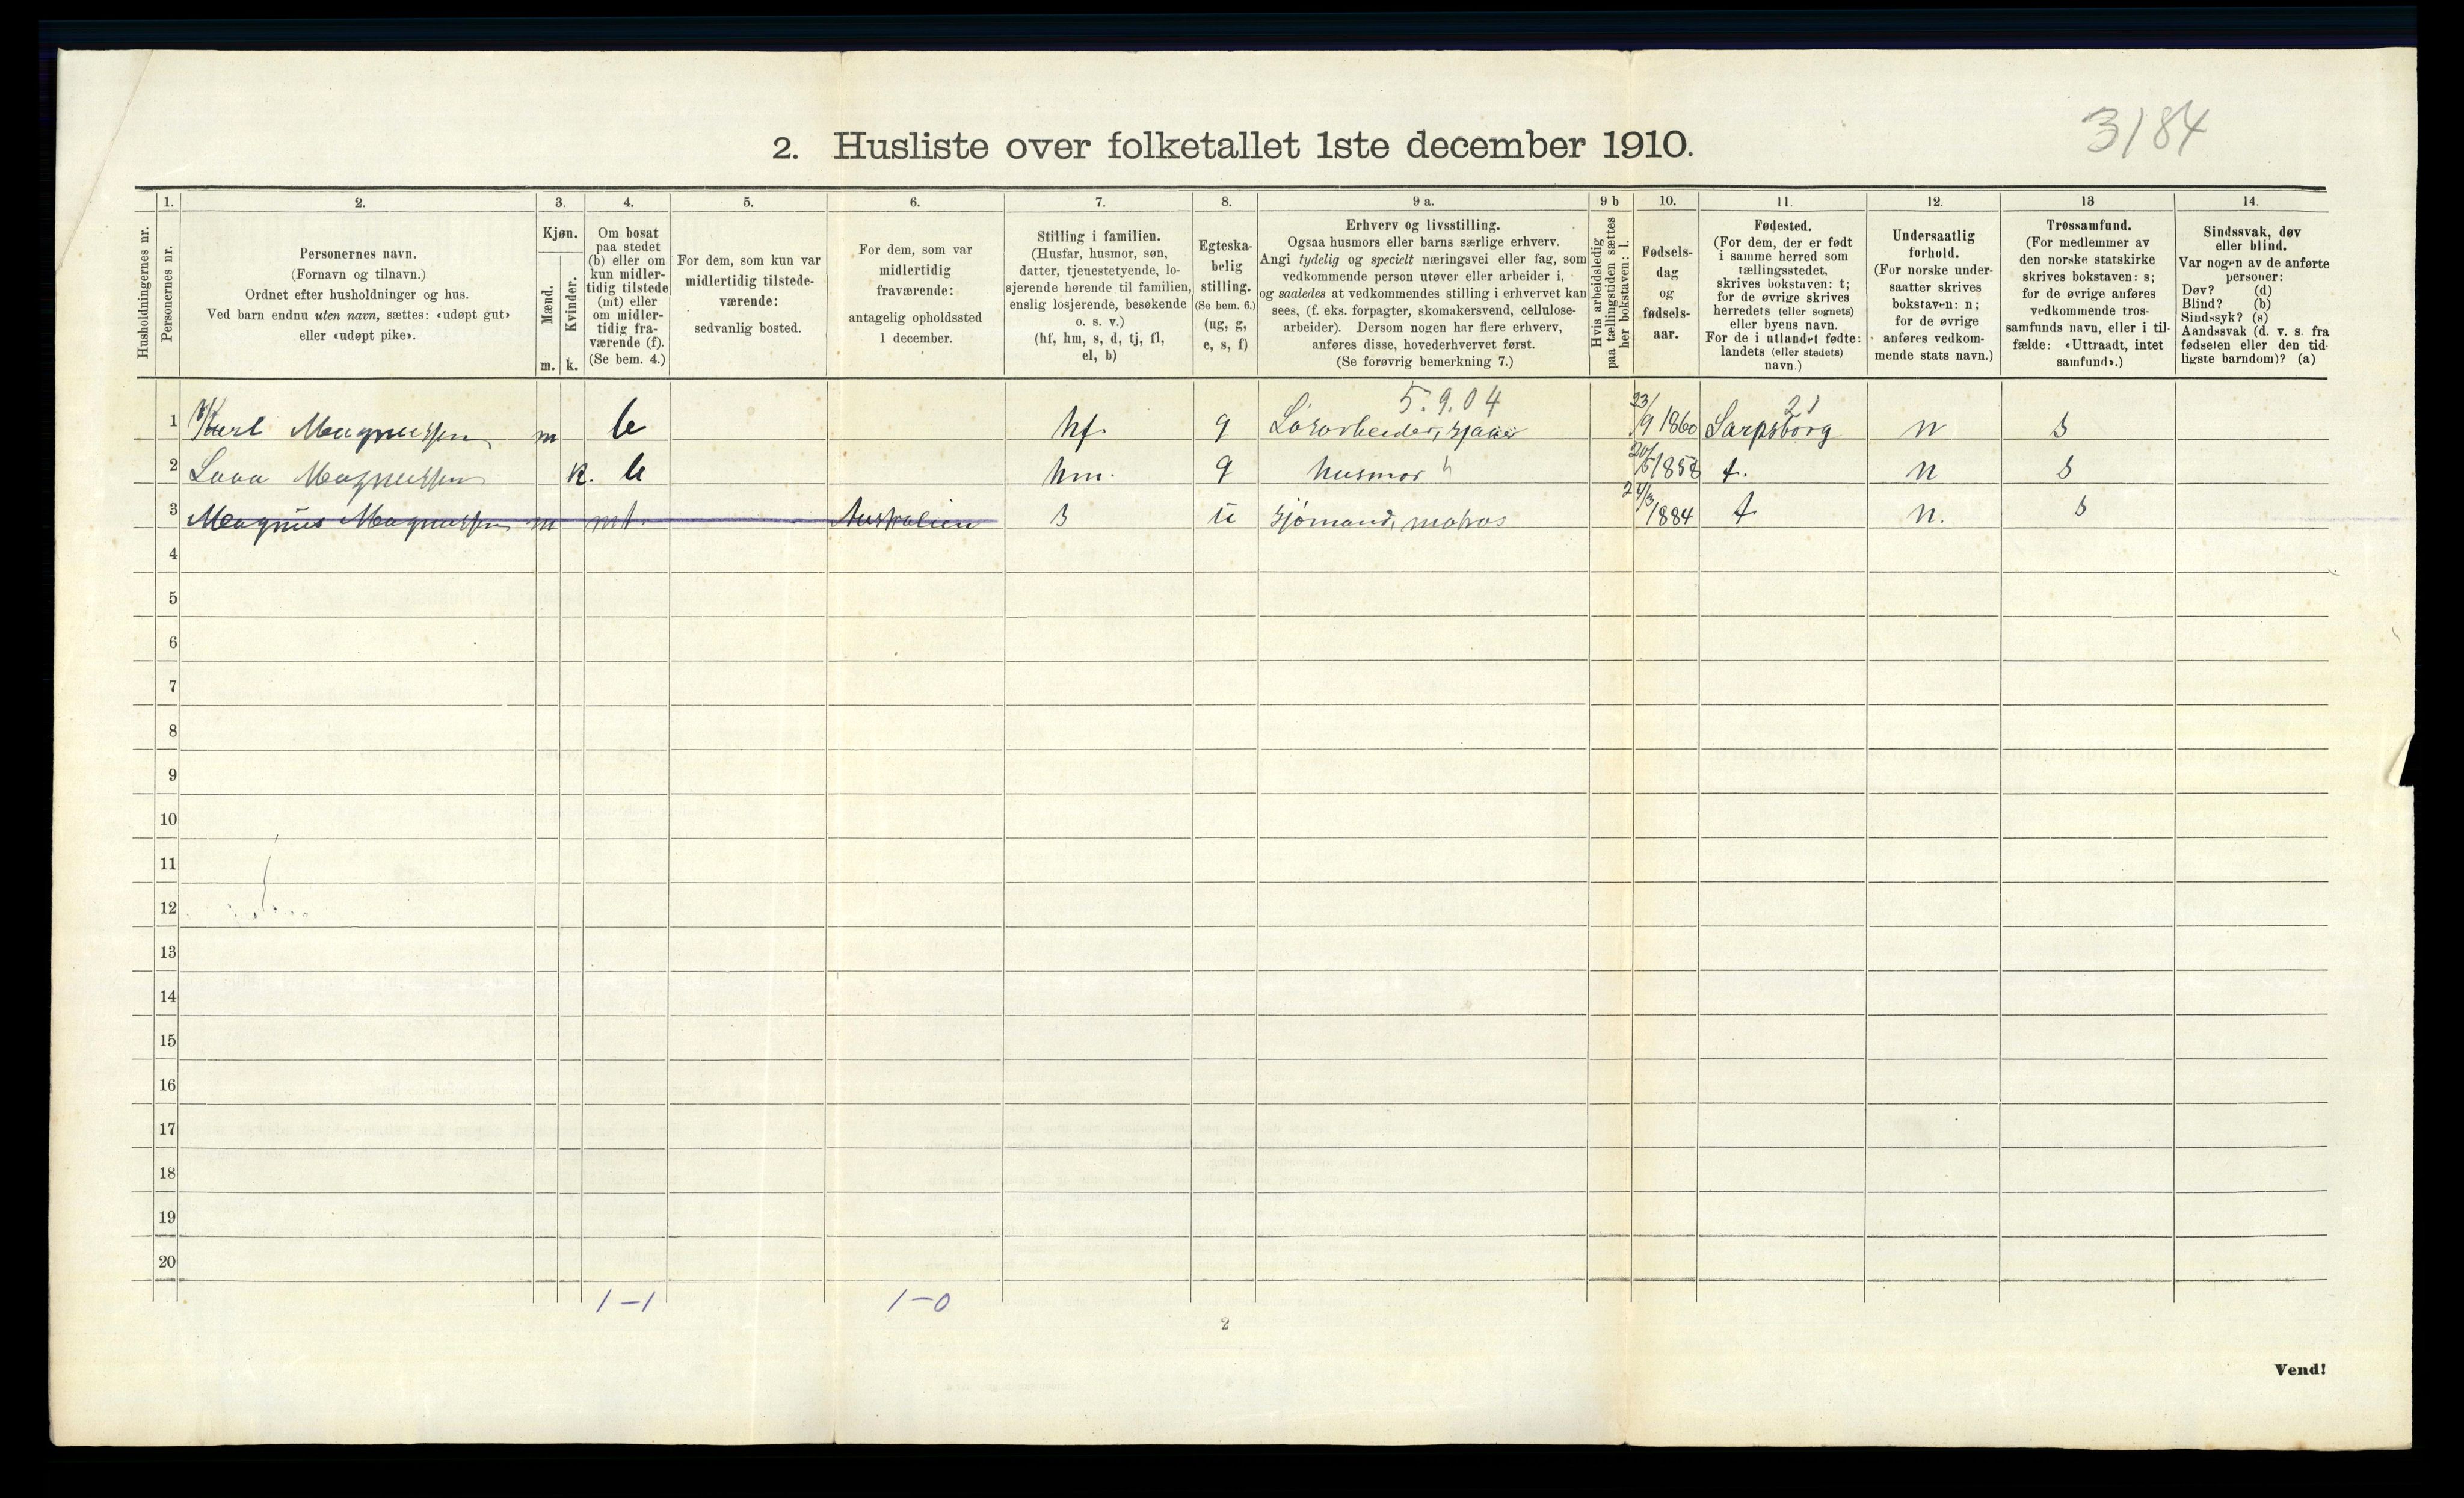 3184
2. Husliste over folketallet 1ste december 1910.
Husholdningernes nr.
1.
Personernes nr.
2.
Personernes navn.
(Fornavn og tilnavn.)
Ordnet efter husholdninger og hus.
Ved barn endnu uten navn, sættes: «udøpt gut»
eller «udøpt pike».
3.
Kjøn.
Mænd.
Kvinder.
m. k.
4.
Om bosat
paa stedet
(b) eller om
kun midler-
tidig tilstede
(mt) eller
om midler-
tidig fra-
værende (f).
(Se bem. 4.)
5.
For dem, som kun var
midlertidig tilstede-
værende:
sedvanlig bosted.
6.
For dem, som var
midlertidig
fraværende:
antagelig opholdssted
1 december.
7.
Stilling i familien.
(Husfar, husmor, søn,
datter, tjenestetyende, lo-
sjerende hørende til familien,
enslig losjerende, besøkende
o. s. v.)
(hf, hm, s, d, tj, fl,
el, b)
8.
Egteska-
belig
stilling.
(Se bem. 6.)
(ug, g,
e, s, f)
9 a.
Erhverv og livsstilling.
Ogsaa husmors eller barns særlige erhverv.
Angi tydelig og specielt næringsvei eller fag, som
vedkommende person utøver eller arbeider i,
og saaledes at vedkommendes stilling i erhvervet kan
sees, (f. eks. forpagter, skomakersvend, cellulose-
arbeider). Dersom nogen har flere erhverv,
anføres disse, hovederhvervet først.
(Se forøvrig bemerkning 7.)
9 b
Hvis arbeidsledig
paa tællingstiden sættes
her bokstaven: l.
10.
Fødsels-
dag
og
fødsels-
aar.
11.
Fødested.
(For dem, der er født
i samme herred som
tællingsstedet,
skrives bokstaven: t;
for de øvrige skrives
herredets (eller sognets)
eller byens navn.
For de i utlandet fødte:
landets (eller stedets)
navn.)
12.
Undersaatlig
forhold.
(For norske under-
saatter skrives
bokstaven: n;
for de øvrige
anføres vedkom-
mende stats navn.)
13
Trossamfund.
(For medlemmer av
den norske statskirke
skrives bokstaven: s;
for de øvrige anføres
vedkommende tros-
samfunds navn, eller i til-
fælde: «Uttraadt, intet
samfund».)
14.
Sindssvak, døv
eller blind.
Var nogen av de anførte
personer:
Døv? (d)
Blind? (b)
Sindssyk? (s)
Aandssvak (d. v. s. fra
fødselen eller den tid-
ligste barndom)? (a)
5.9.04 21
1 Karl Magnussen m b hf. g Løsarbeider, 23/9 1860 Sarpsborg n s
2 Magnussen k. b hm. g husmor 20/5 1858 t. n s
3 Magnus Magnussen m mt. Australien s u sjømand, matros 24/3 1884 t n. s
4
5
6
7
8
9
10
11
12
13
14
15
16
17
18
19
20
1-1 1-0
2
Vend!